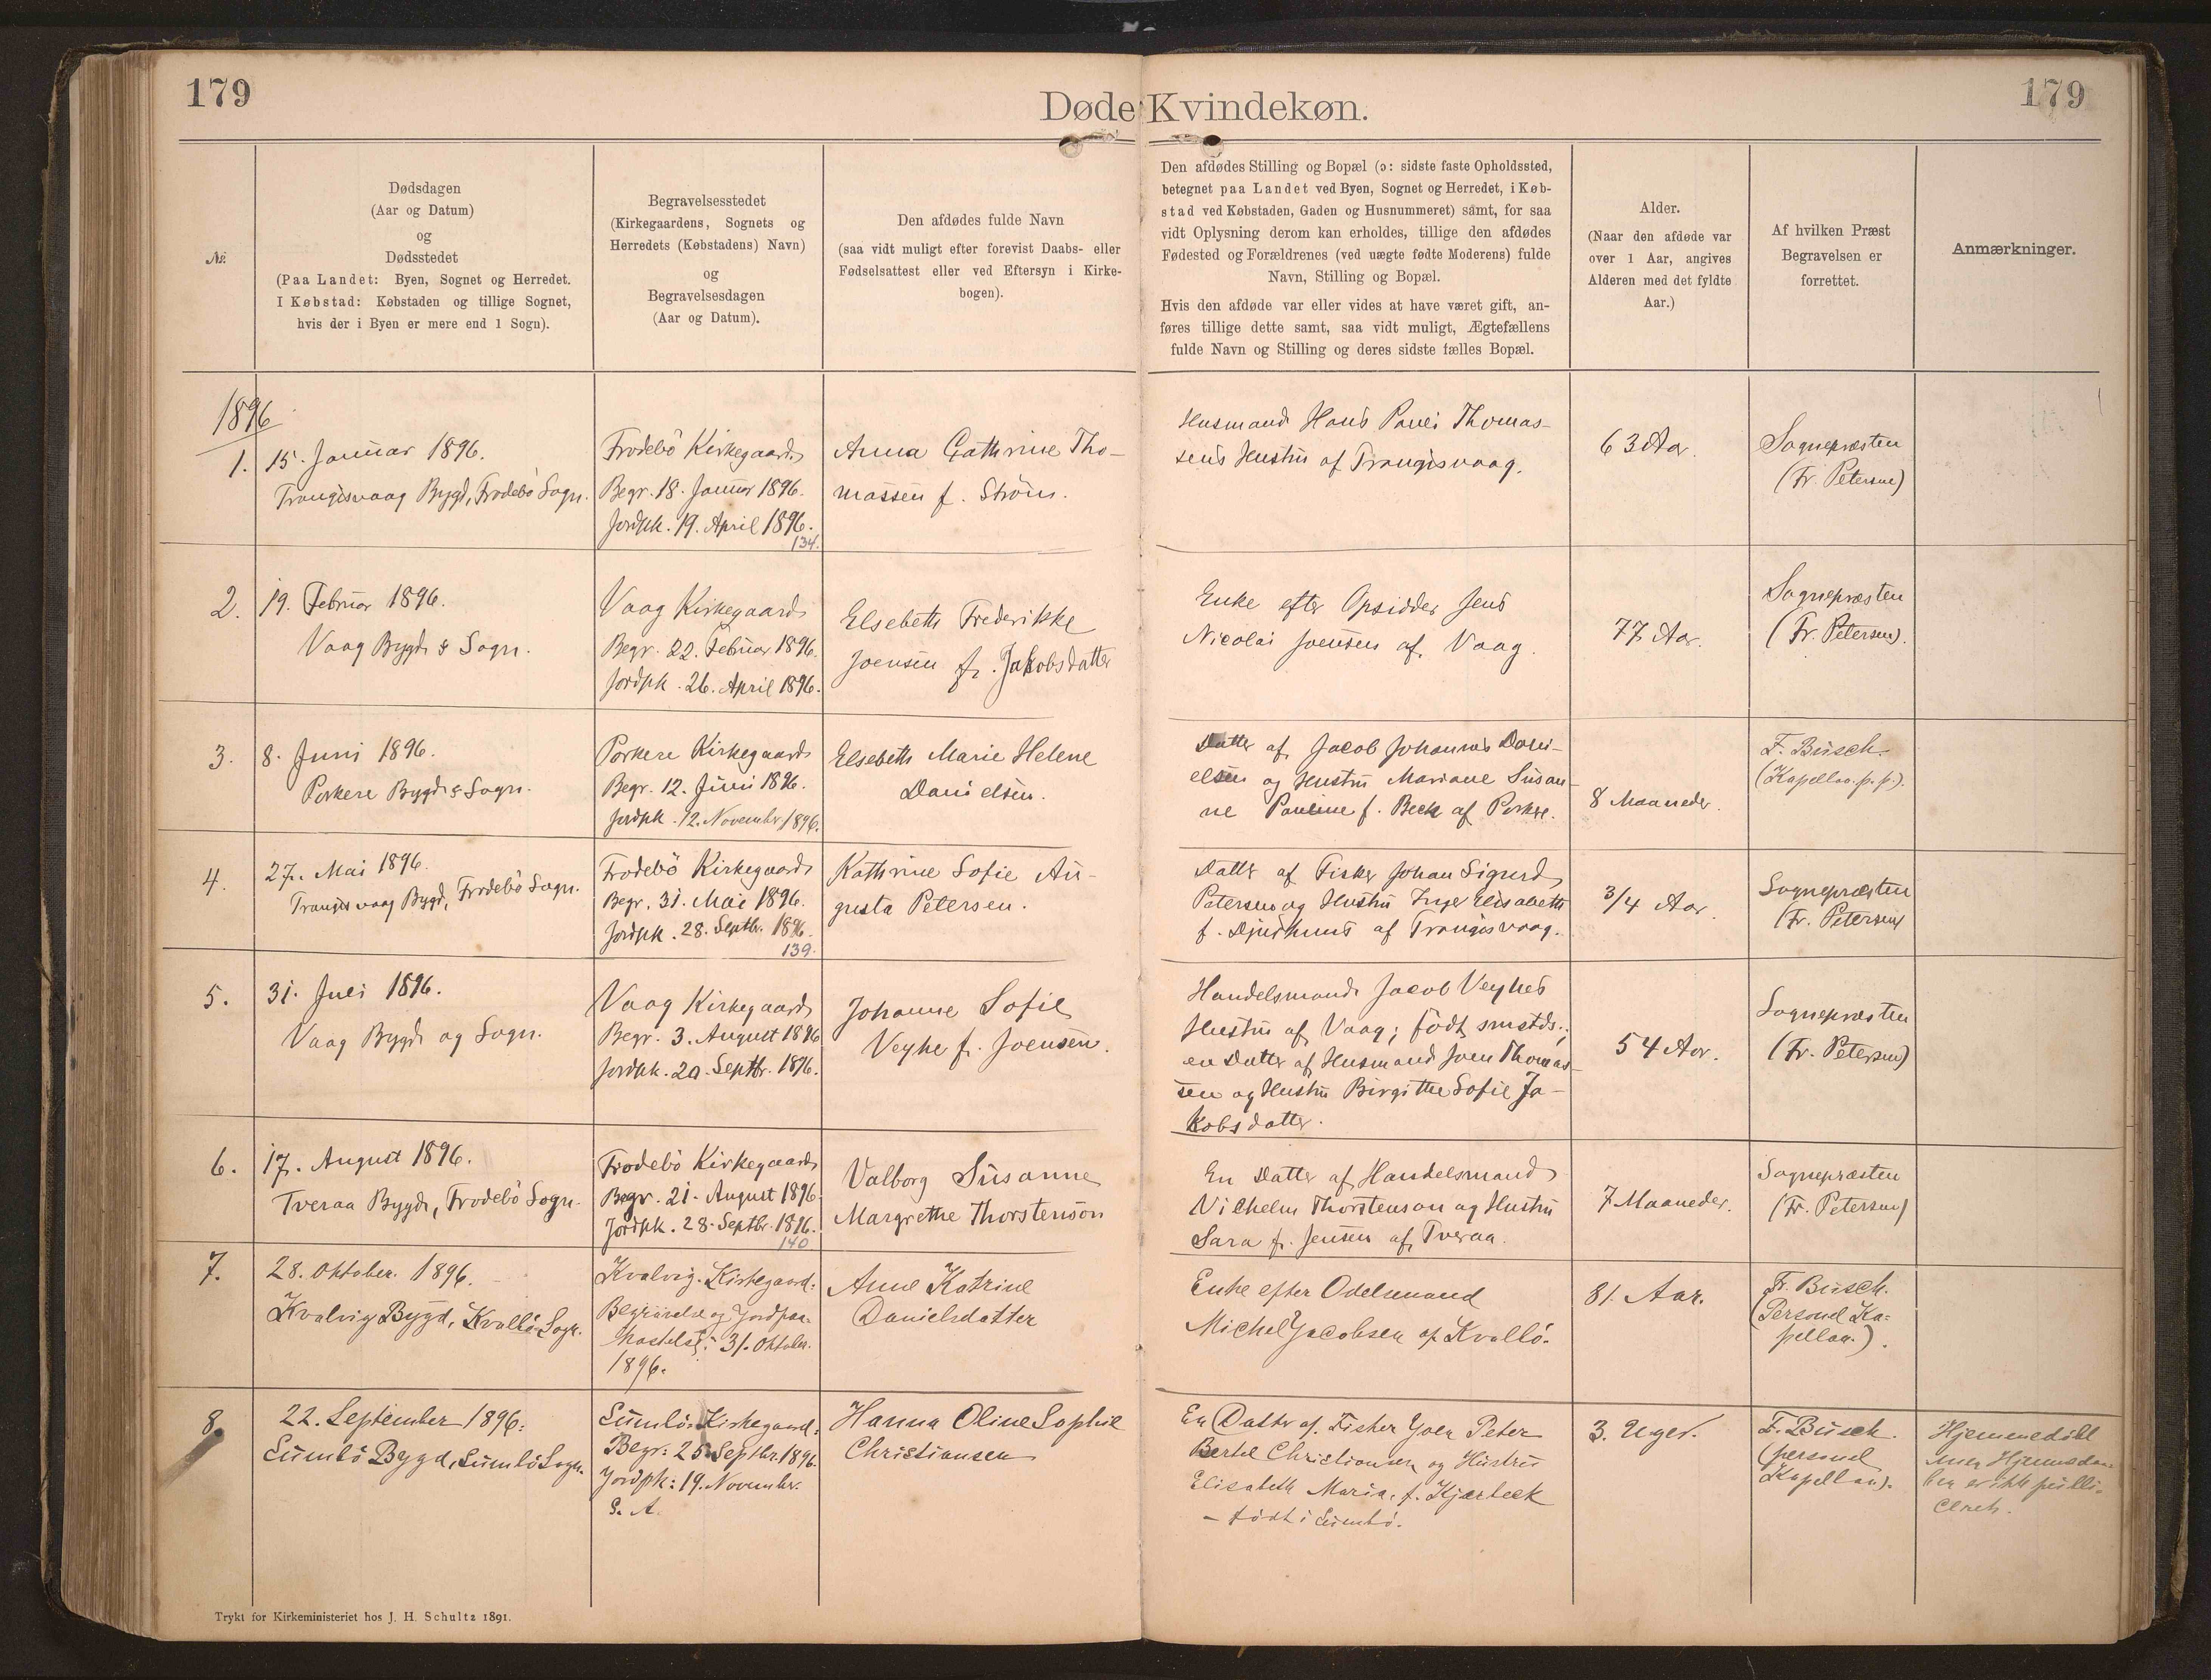 179
179
Døde Kvindekøn.
№.
Dødsdagen
(Aar og Datum)
og
Dødsstedet
(Paa Landet: Byen, Sognet og Herredet.
I Købstad: Købstaden og tillige Sognet,
hvis der i Byen er mere end 1 Sogn).
Begravelsesstedet
(Kirkegaardens, Sognets og
Herredets (Købstadens) Navn)
og
Begravelsesdagen
(Aar og Datum).
Den afdødes fulde Navn
(saa vidt muligt efter forevist Daabs- eller
Fødselsattest eller ved Eftersyn i Kirke-
bogen).
Den afdødes Stilling og Bopæl (ɔ: sidste faste Opholdssted,
betegnet paa Landet ved Byen, Sognet og Herredet, i Køb-
stad ved Købstaden, Gaden og Husnummeret) samt, for saa
vidt Oplysning derom kan erholdes, tillige den afdødes
Fødested og Forældrenes (ved uægte fødte Moderens) fulde
Navn, Stilling og Bopæl.
Hvis den afdøde var eller vides at have været gift, an-
føres tillige dette samt, saa vidt muligt, Ægtefællens
fulde Navn og Stilling og deres sidste fælles Bopæl.
Alder.
(Naar den afdøde var
over 1 Aar, angives
Alderen med det fyldte
Aar.)
Af hvilken Præst
Begravelsen er
forrettet.
Anmærkninger.
1896
1.
15. Januar 1896.
Trangisvaag Bygd, Frodebö Sogn.
Frodebö Kirkegaard
Begr. 18. Januar 1896.
Jordpk. 19. April 1896.
134.
Anna Cathrine Tho-
massen f. Ström.
Husmand Hans Pauli Thomas-
sens Hustru af Trangisvaag.
63 Aar.
Sognepræsten
(Fr. Petersen)
2.
19. Februar 1896.
Vaag Bygd & Sogn.
Vaag Kirkegaard
Begr. 22. Februar 1896.
Jordpk. 26. April 1896.
Elsebeth Frederikke
Joensen f. Jakobsdatter
Enke efter Opsidder Jens
Nicolai Joensen af Vaag.
77 Aar.
Sognepræsten
(Fr. Petersen).
3.
8. Juni 1896.
Porkere Bygd & Sogn.
Porkere Kirkegaard
Begr. 12. Juni 1896.
Jordpk. 12. Novembr. 1896.
Elsebeth Marie Helene
Danielsen.
Datter af Jacob Johannes Dani-
elsen og Hustru Mariane Susan-
ne Pauline f. Beck af Porkere.
8 Maaneder.
F. Büsch.
(Kapellan. p. p.).
4.
27. Mai 1896.
Trangisvaag Bygd, Frodebö Sogn.
Frodebö Kirkegaard
Begr. 31. Mai 1896.
Jordpk. 28. Septbr. 1896.
139.
Kathrine Sofie Au-
gusta Petersen.
Datter af Fisker Johan Sigurd
Petersen og Hustru Inger Elisabeth
f. Djurhuus af Trangisvaag.
3/4 Aar.
Sognepræsten
(Fr. Petersen)
5.
31. Juli 1896.
Vaag Bygd og Sogn.
Vaag Kirkegaard
Begr. 3. August 1896
Jordpk. 20. Septbr. 1896.
Johanne Sofie
Veyhe f. Joensen.
Handelsmand Jacob Veyhes
Hustru af Vaag; født smstds.;
en Datter af Husmand Joen Thomas-
sen og Hustru Birgithe Sofie Ja-
kobsdatter.
54 Aar.
Sognepræsten
(Fr. Petersen)
6.
17. August 1896.
Tveraa Bygd, Frodebö Sogn.
Frodebö Kirkegaard
Begr. 21. August 1896
Jordpk. 28. Septbr. 1896.
140
Valborg Susanne
Margrethe Thorstenson
En Datter af Handelsmand
Vilhelm Thorstenson og Hustru
Sara f. Jensen af Tveraa.
7 Maaneder.
Sognepræsten
(Fr. Petersen)
7.
28. Oktober. 1896.
Kvalvig Bygd, Kvalbö Sogn.
Kvalvig. Kirkegaard:
Begravelse og Jordpaa-
kastelse: 31. Oktober.
1896.
Anne Katrine
Danielsdatter
Enke efter Odelsmand
Michel Jacobsen af Kvalbö.
81. Aar.
Fr. Büsch.
(Personel Ka-
pellan.).
8.
22. September 1896.
Sumbö Bygd, Sumbö Sogn.
Sumbö. Kirkegaard:
Begr: 25. Septbr. 1896.
Jordpk: 19. Novembr.
S. A.
Hanna Oline Sophie
Christiansen
En Datter af Fisker Joen Peter
Bertel Christiansen og Hustru
Elisabeth Maria, f. Kjærbeck
- født i Sumbö.
3. Uger.
F. Büsch.
(personel
Kapellan).
Hjemmedøbt
men Hjemmedaa-
ben er ikke publi-
ceret.
Trykt for Kirkeministeriet hos J. H. Schultz 1891.